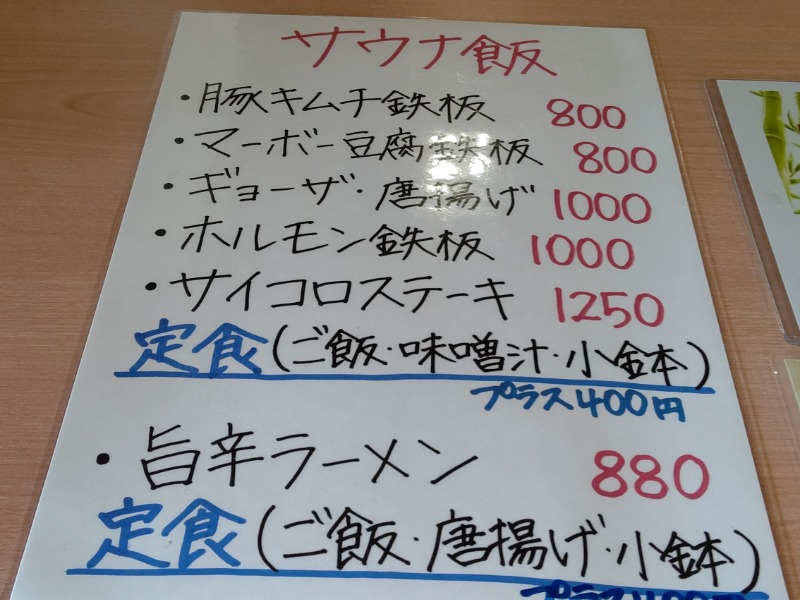 サウナ飯
・豚キムチ鉄板 800
・マーボー豆腐鉄板 800
・ギョーザ・唐揚げ 1000
・ホルモン鉄板 1000
・サイコロステーキ 1250
定食(ご飯・味噌汁・小鉢)
プラス400円
・旨辛ラーメン 880
定食(ご飯・唐揚げ・小鉢)
プラス400円